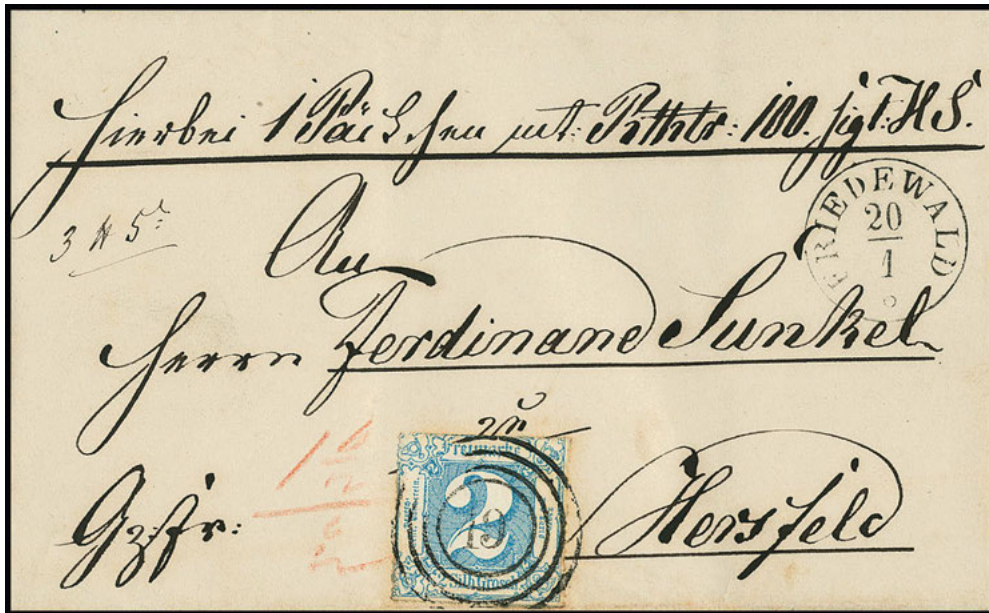 Hierbei 1 Päckchen mit Rthlr: 100. sigt. H S.
FRIEDEWALD
20
1
3 5
An
Herrn Ferdinand Sunkel
zu
Freimarke
2
19
2 Silb. Grosch.
Hersfeld